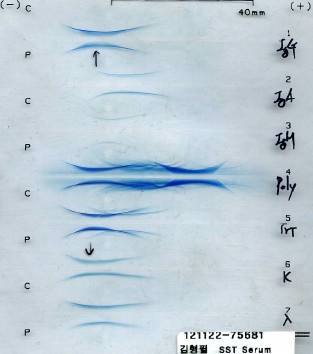 (-) C 40mm (+)
P 1 IgG
C 2 IgA
P 3 IgM
4 Poly
C
5 Trf
P
6 K
C
7 λ
P
121122-75681
김형필 SST Serum